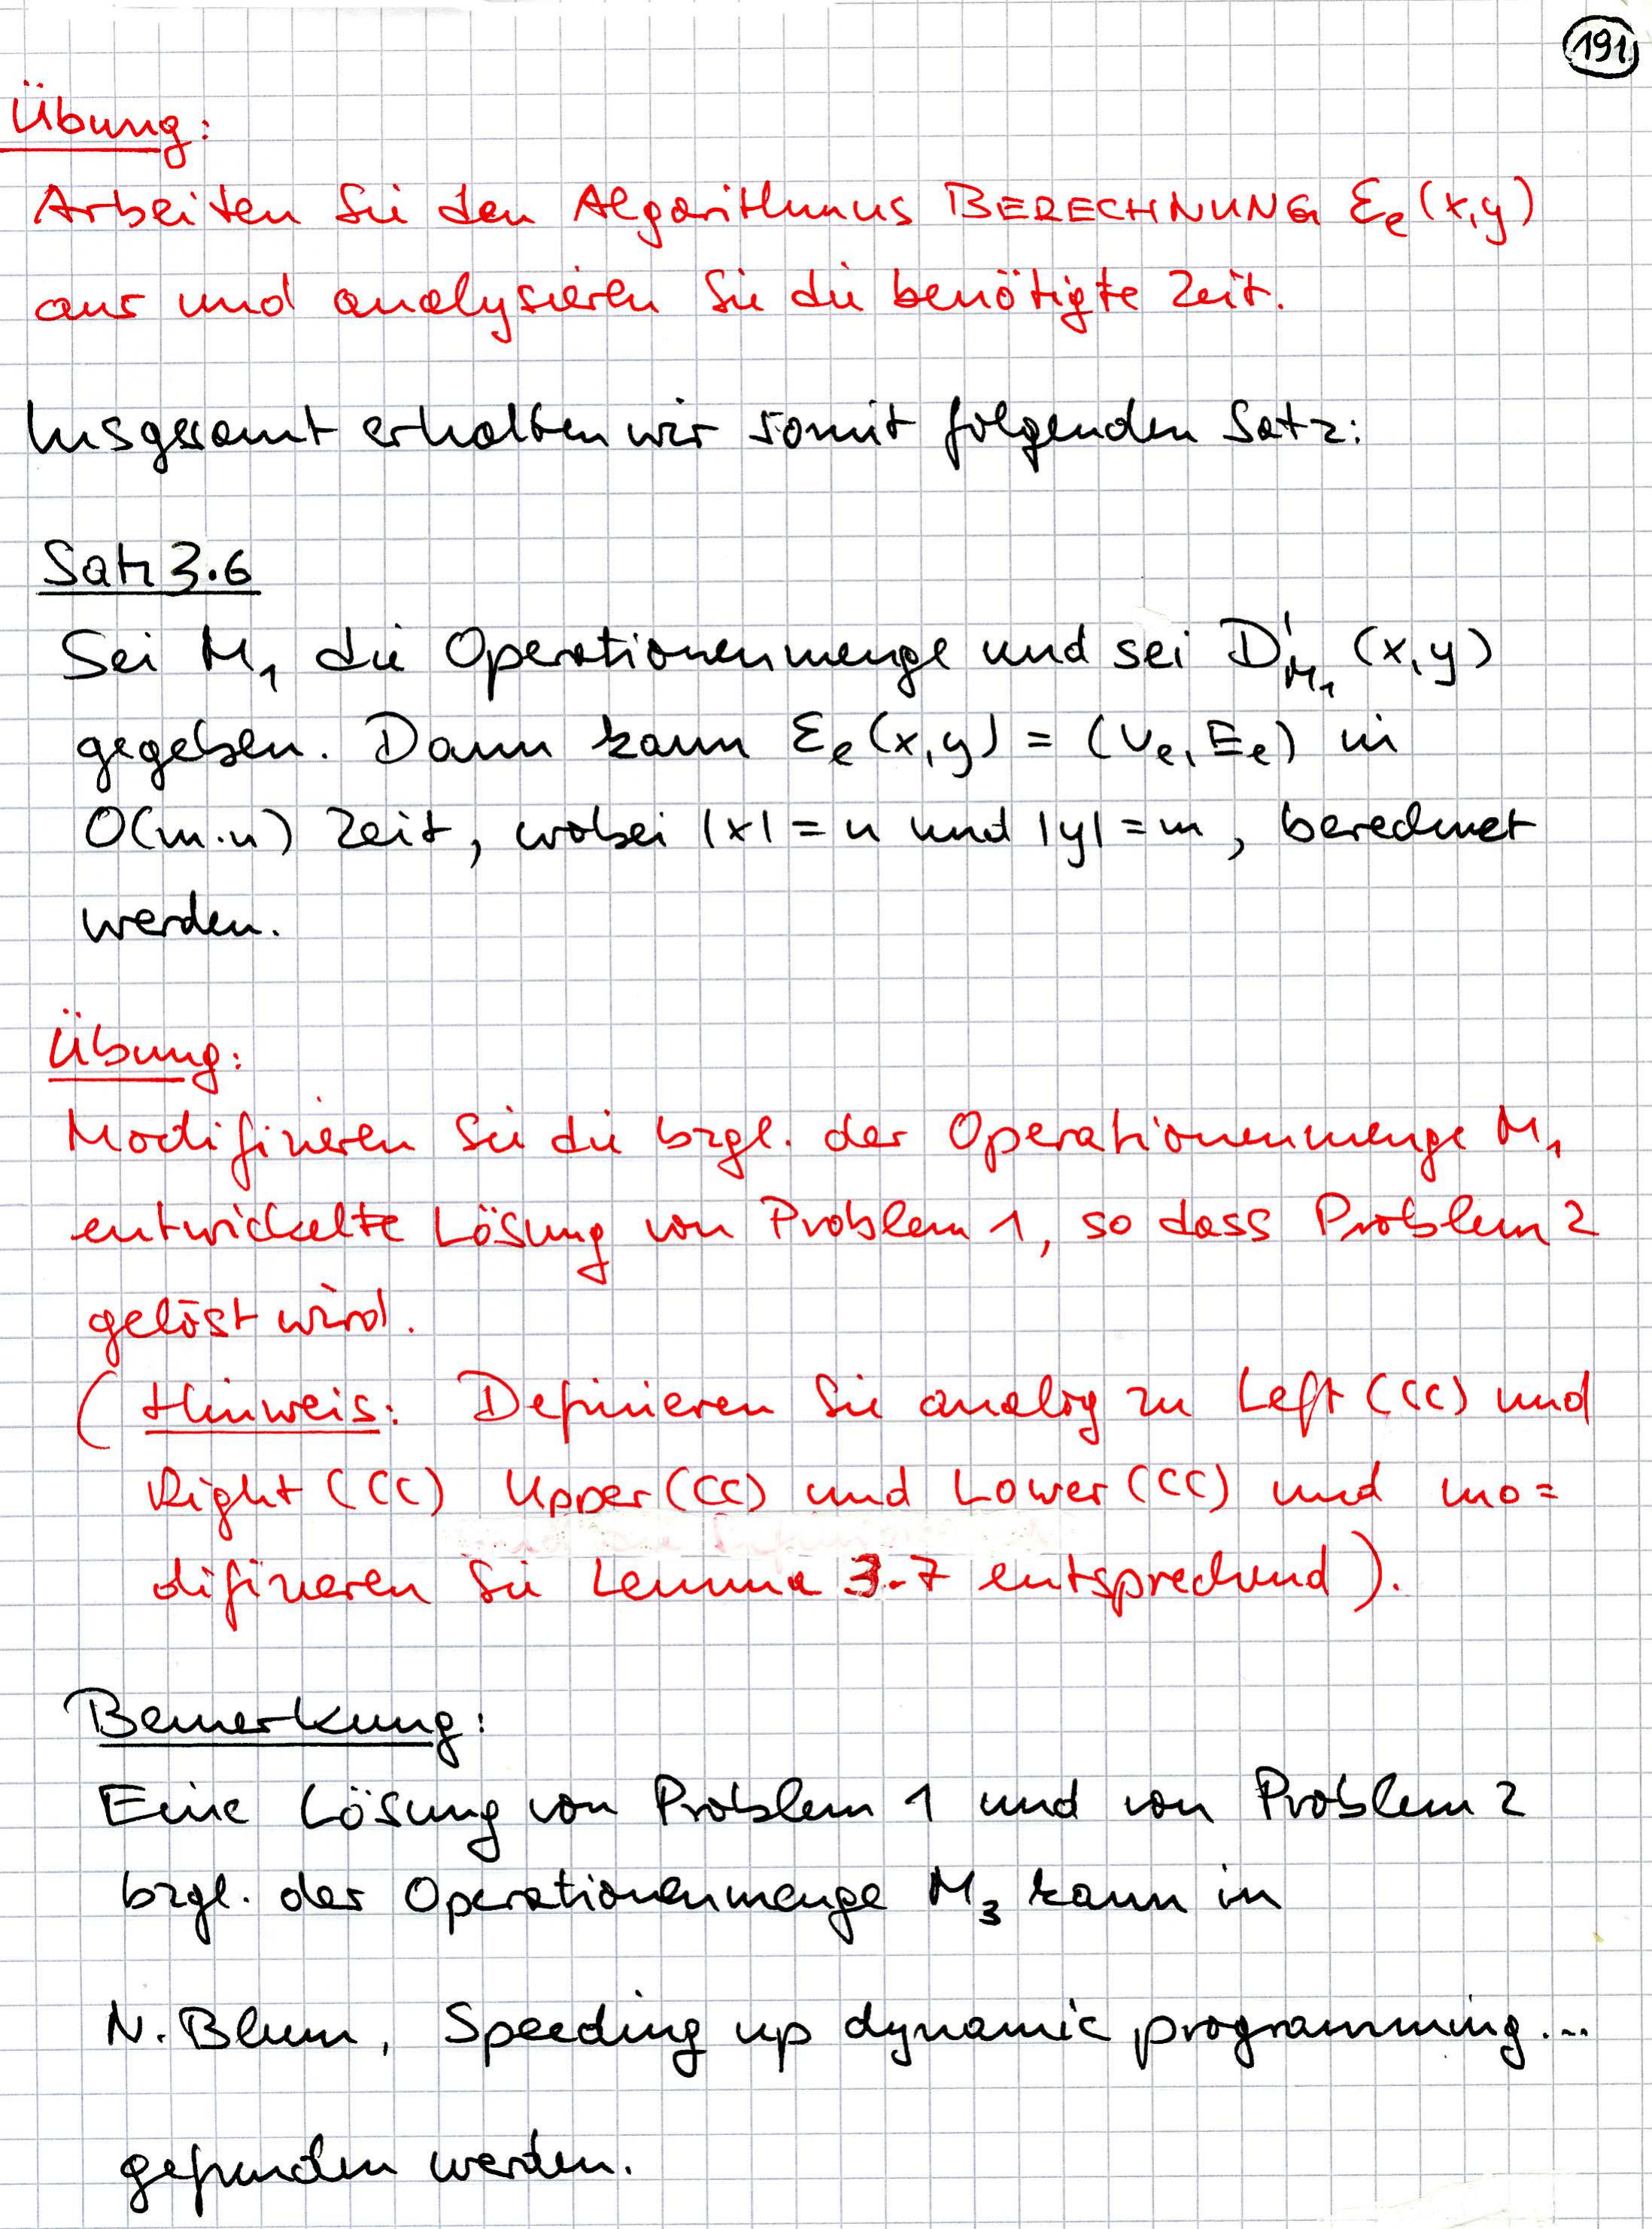 191
Übung:
Arbeiten Sie den Algorithmus BERECHNUNG Ɛₑ(x,y)
aus und analysieren Sie die benötigte Zeit.
Insgesamt erhalten wir somit folgenden Satz:
Satz 3.6
Sei M₁ die Operationenmenge und sei D'_M₁ (x,y)
gegeben. Dann kann Ɛₑ(x,y) = (Vₑ, Eₑ) in
O(m·n) Zeit, wobei |x| = n und |y| = m, berechnet
werden.
Übung:
Modifizieren Sie die bzgl. der Operationenmenge M₁
entwickelte Lösung von Problem 1, so dass Problem 2
gelöst wird.
(Hinweis: Definieren Sie analog zu Left(CC) und
Right(CC) Upper(CC) und Lower(CC) und mo=
difizieren Sie Lemma 3.7 entsprechend).
Bemerkung:
Eine Lösung von Problem 1 und von Problem 2
bzgl. der Operationenmenge M₃ kann in
N. Blum, Speeding up dynamic programming...
gefunden werden.